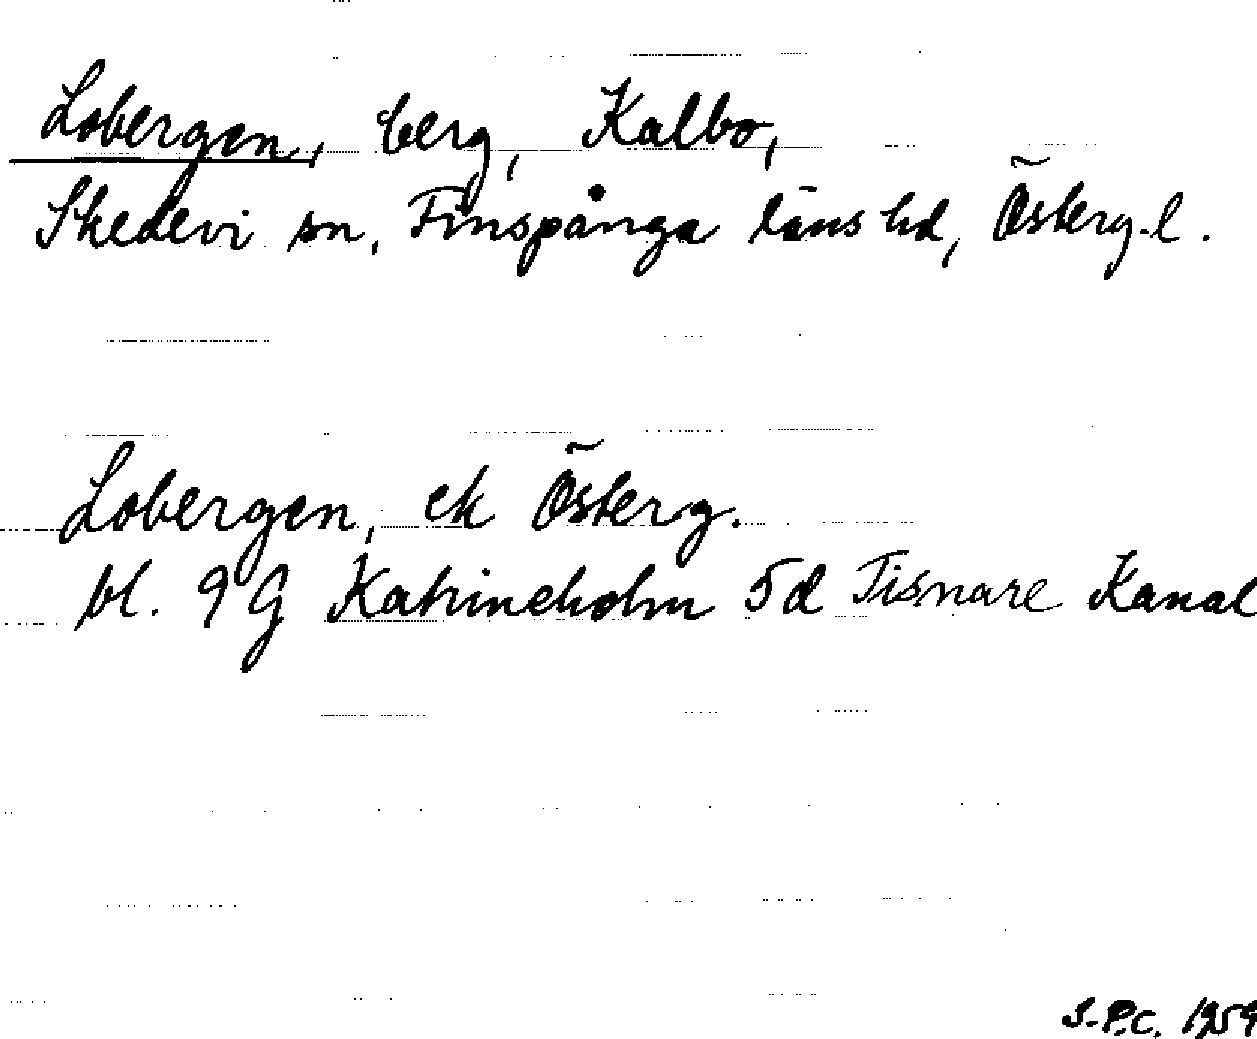 Lobergen, berg, Kalbo,
Skedevi sn, Finspånga läns hd, Österg.l.
Lobergen, ek Österg.
bl. 9G Katrineholm 5d Tisnare Kanal
S-P.C. 1959